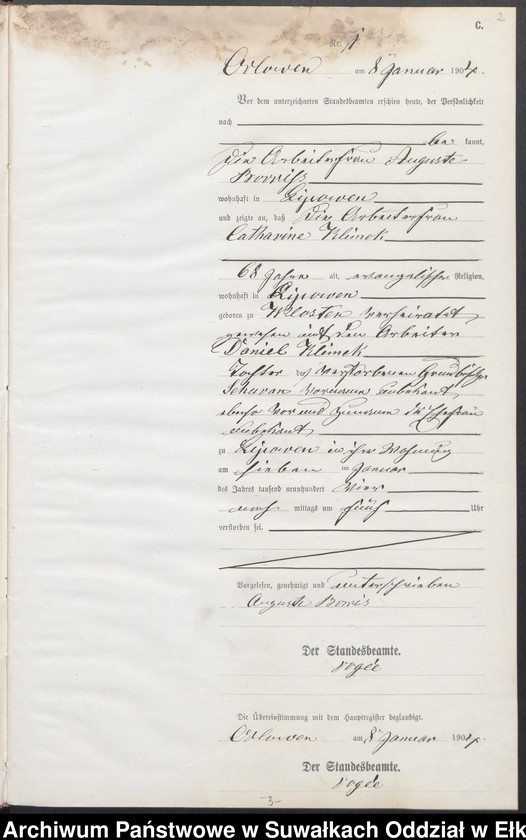 2
C.
Nr. 1
Orlowen am 8 Januar 1904.
Vor dem unterzeichneten Standesbeamten erschien heute, der Persönlichkeit
nach
be kannt,
die Arbeiterfrau Auguste
wohnhaft in Lipowen
und zeigte an, daß die Arbeiterfrau
Catharine Klimek
68 Jahre alt, evangelische Religion,
wohnhaft in Lipowen
geboren zu Klosten verheiratet
gewesen mit dem Arbeiter
Daniel Klimek
Tochter des verstorbenen
Vorname unbekannt
ebenso Vor und Zuname der Ehefrau
unbekannt
zu Lipowen in ihrer Wohnung
am sieben ten Januar
des Jahres tausend neunhundert vier
nach mittags um fünf Uhr
verstorben sei.
Vorgelesen, genehmigt und unterschrieben
Auguste Borris
Der Standesbeamte.
Die Übereinstimmung mit dem Hauptregister beglaubigt.
Orlowen am 8 Januar 1904.
Der Standesbeamte.
-3-
Archiwum Państwowe w Suwałkach Oddział w Ełk